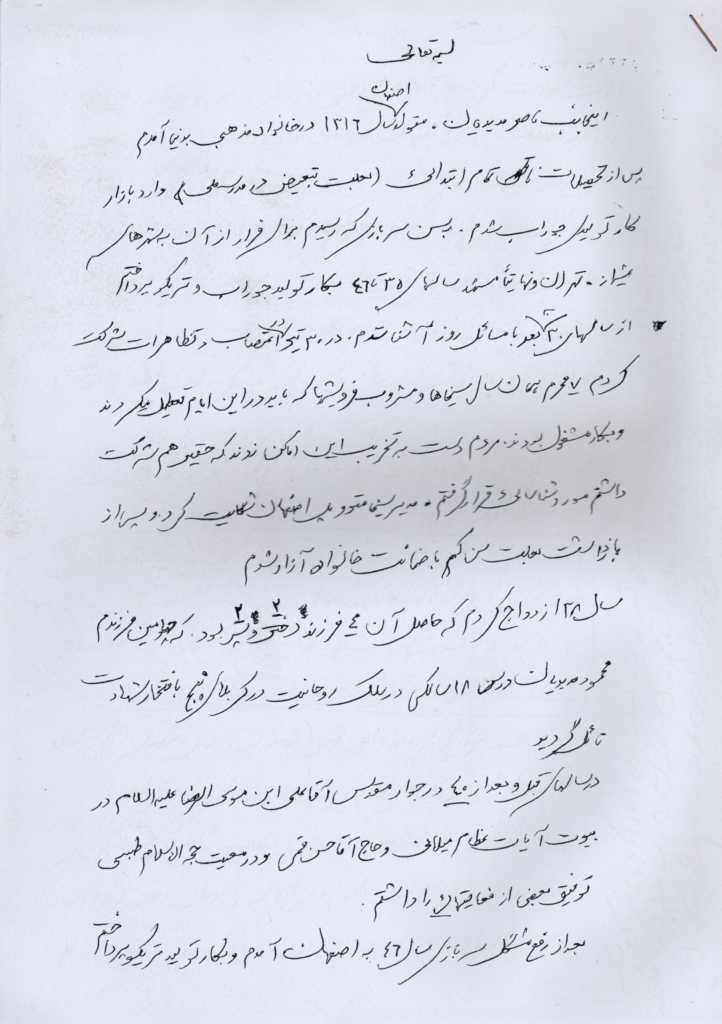 بسمه تعالی
اصفهان
اینجانب ناصر مدیدیان . متولد سال ۱۳۱۶ در خانواده مذهبی بدنیا آمدم
پس از تحصیلات ناتمام ابتدائی (بعلت تبعیض در مدرسه ملی) وارد بازار
کار تولیدی جوراب شدم . بسن سربازی که رسیدم برای فرار از آن به شهرهای
شیراز . تهران و نهایتاً مشهد سالهای ۳۵ تا ۴۶ بکار تولید جوراب و تریکو پرداختم
از سالهای ۳۰ ببعد با مسائل روز آشنا شدم . در ۳۰ تیر در اعتصاب و تظاهرات شرکت
کردم ۷ محرم همان سال سینماها و مشروب فروشیها که باید در این ایام تعطیل میکردند
و بکار مشغول بودند . مردم دست به تخریب این اماکن زدند که حقیر هم شرکت
داشتم مورد شناسائی قرار گرفتم . مدیر سینما متروپل اصفهان شکایت کرد و پس از
بازداشت بعلت سن کم با ضمانت خانواده آزاد شدم
سال ۳۸ ازدواج کردم که حاصل آن ۴ فرزند ۲ دختر و ۲ پسر بود . که دومین فرزندم
محمود مدیدیان در سن ۱۸ سالگی در سلک روحانیت در کربلای پنج بافتخار شهادت
نائل گردید
در سالهای قبل و بعد از ۴۰ در جوار مقدس آقا علی ابن موسی الرضا علیه السلام در
بیوت آیات عظام میلانی و حاج آقا حسن قمی و در معیت حجة الاسلام طبسی
توفیق بعضی از فعالیتها را داشتم .
بعد از رفع مشکل سربازی سال ۴۶ به اصفهان آمدم و بکار تولید تریکو پرداختم